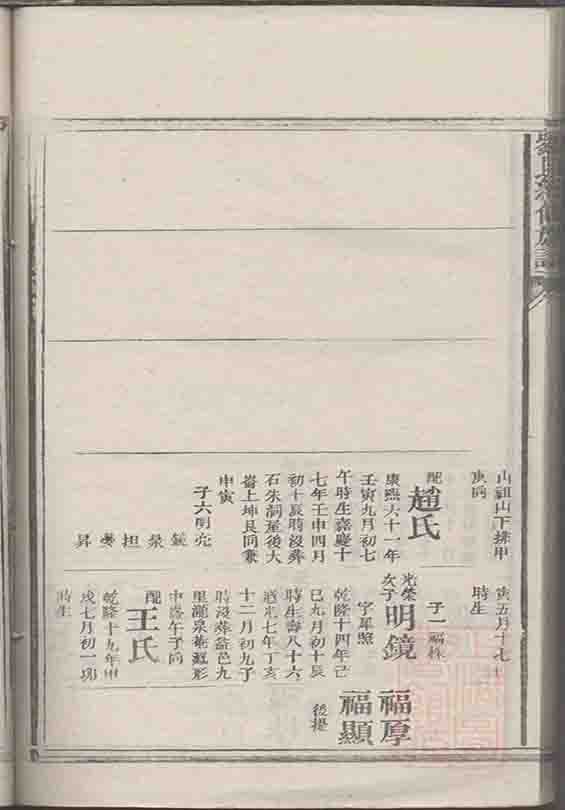 山祖山下採甲
庚向
配
趙氏
康熙六十一年
壬寅九月初七
午時生嘉慶十
七年壬申四月
初十辰時沒葬
石朱洞屋後大
崙上坤艮同兼
申寅
子六明亮
鏡
泉
担
昇
寅五月十七
時生
子一福株
光榮
次子
明鏡
字羣照
乾隆十四年己
巳九月初十辰
時生壽八十六
道光七年丁亥
十二月初九子
時沒葬益邑九
里灑泉菴蠶形
中庵午子向
配
王氏
乾隆十九年甲
戌七月初一
時生
福厚
福顯
後提